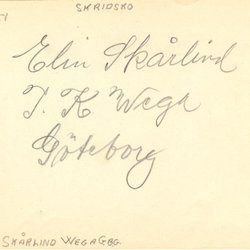 SKRIDSKO
Elin Skårlind
I. K Wega
Göteborg
SKÅRLIND WEGA GBG.